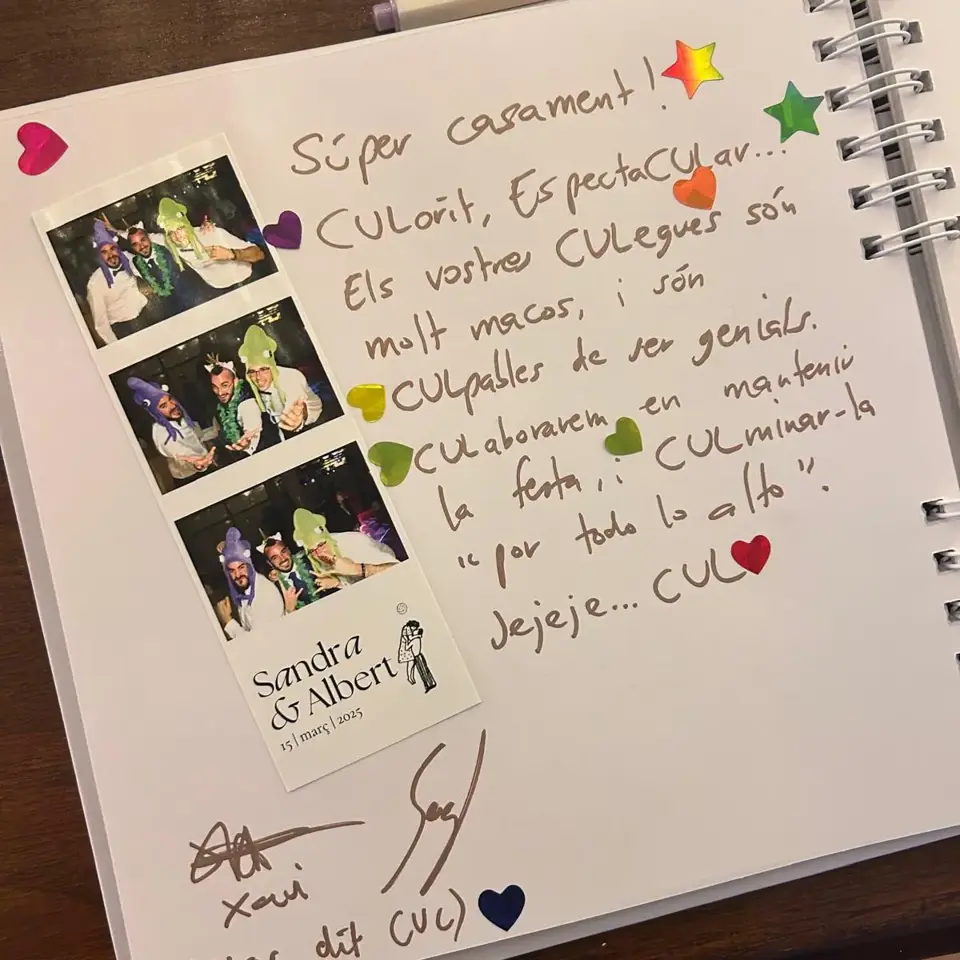 Súper casament!
CULorit, EspectaCULar...
Els vostres CULegues són
molt macos, i són
CULpables de ser genials.
CULaborarem en mantenir
la festa, i CULminar-la
"por todo lo alto".
Jejeje... CUL
Sandra
& Albert
15 | març | 2025
Xavi
dit CUL)